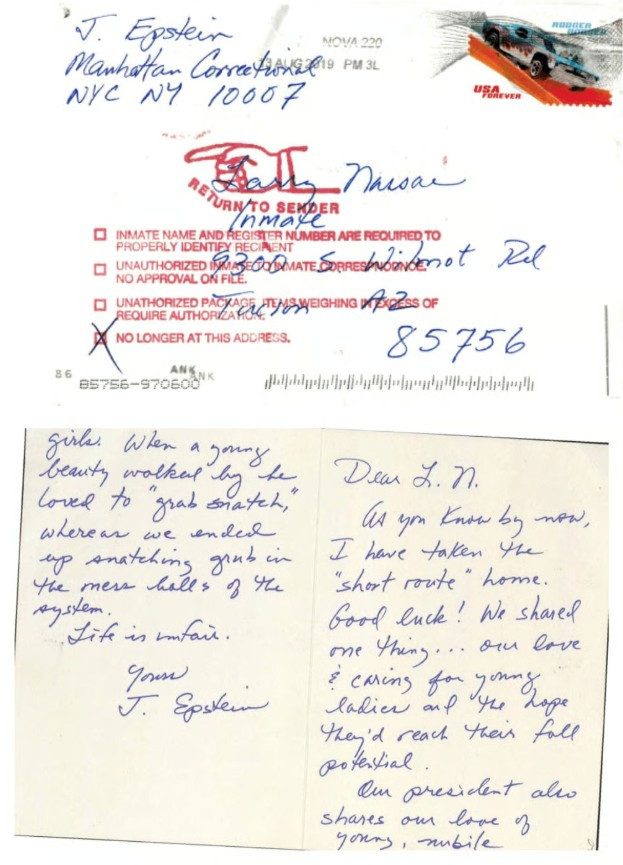 J. Epstein
Manhattan Correctional
NYC NY 10007
NOVA 220
AUG 2019 PM 3L
RODGER
DODGER
USA
FOREVER
RETURN TO SENDER
Larry Nassar
Inmate
9300 S. Wilmot Rd
Tucson AZ
85756
INMATE NAME AND REGISTER NUMBER ARE REQUIRED TO
PROPERLY IDENTIFY RECIPIENT
UNAUTHORIZED INMATE TO INMATE CORRESPONDENCE.
NO APPROVAL ON FILE.
UNATHORIZED PACKAGE, ITEMS WEIGHING IN EXCESS OF
REQUIRE AUTHORIZATION.
X NO LONGER AT THIS ADDRESS.
86
ANK
ANK
85756-970600
Dear L. N.
As you know by now,
I have taken the
"short route" home.
Good luck! We shared
one thing... our love
& caring for young
ladies and the hope
they'd reach their full
potential.
Our president also
shares our love of
young, nubile
girls. When a young
beauty walked by he
loved to "grab snatch,"
whereas we ended
up snatching grub in
the mess halls of the
system.
Life is unfair.
Yours
J. Epstein